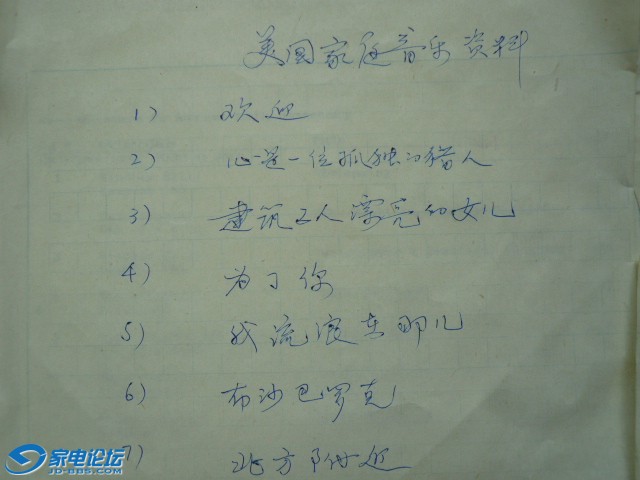 美国家庭音乐资料
1) 欢迎
2) 心是一位孤独的猎人
3) 建筑工人漂亮的女儿
4) 为了你
5) 我流浪在那儿
6) 布沙巴罗克
7) 北方附近
家电论坛
JD-BBS.COM